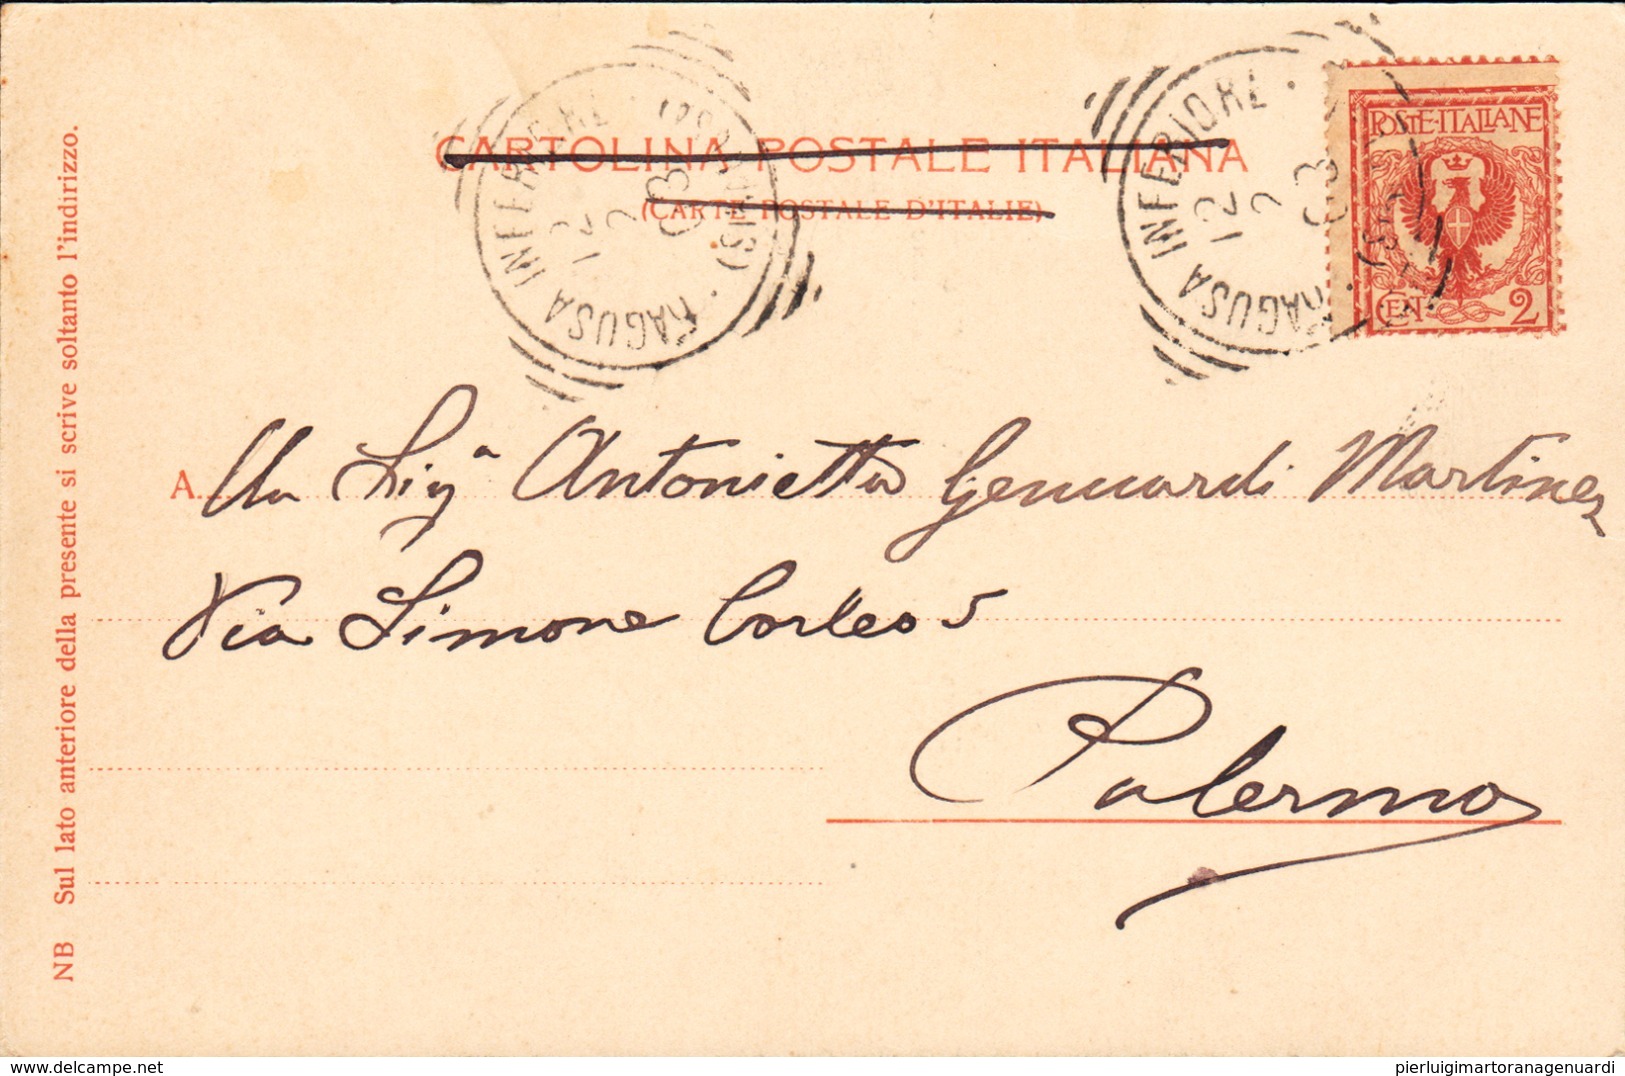 CARTOLINA POSTALE ITALIANA
(CARTE POSTALE D'ITALIE)
RAGUSA INFERIORE
12
2
03
RAGUSA INFERIORE
12
2
03
POSTE·ITALIANE
CENT 2
NB Sul lato anteriore della presente si scrive soltanto l'indirizzo.
A
Alla Sigª Antonietta Genuardi Martinez
Via Simone Corleo 5
Palermo
pierluigimartoranagenuardi